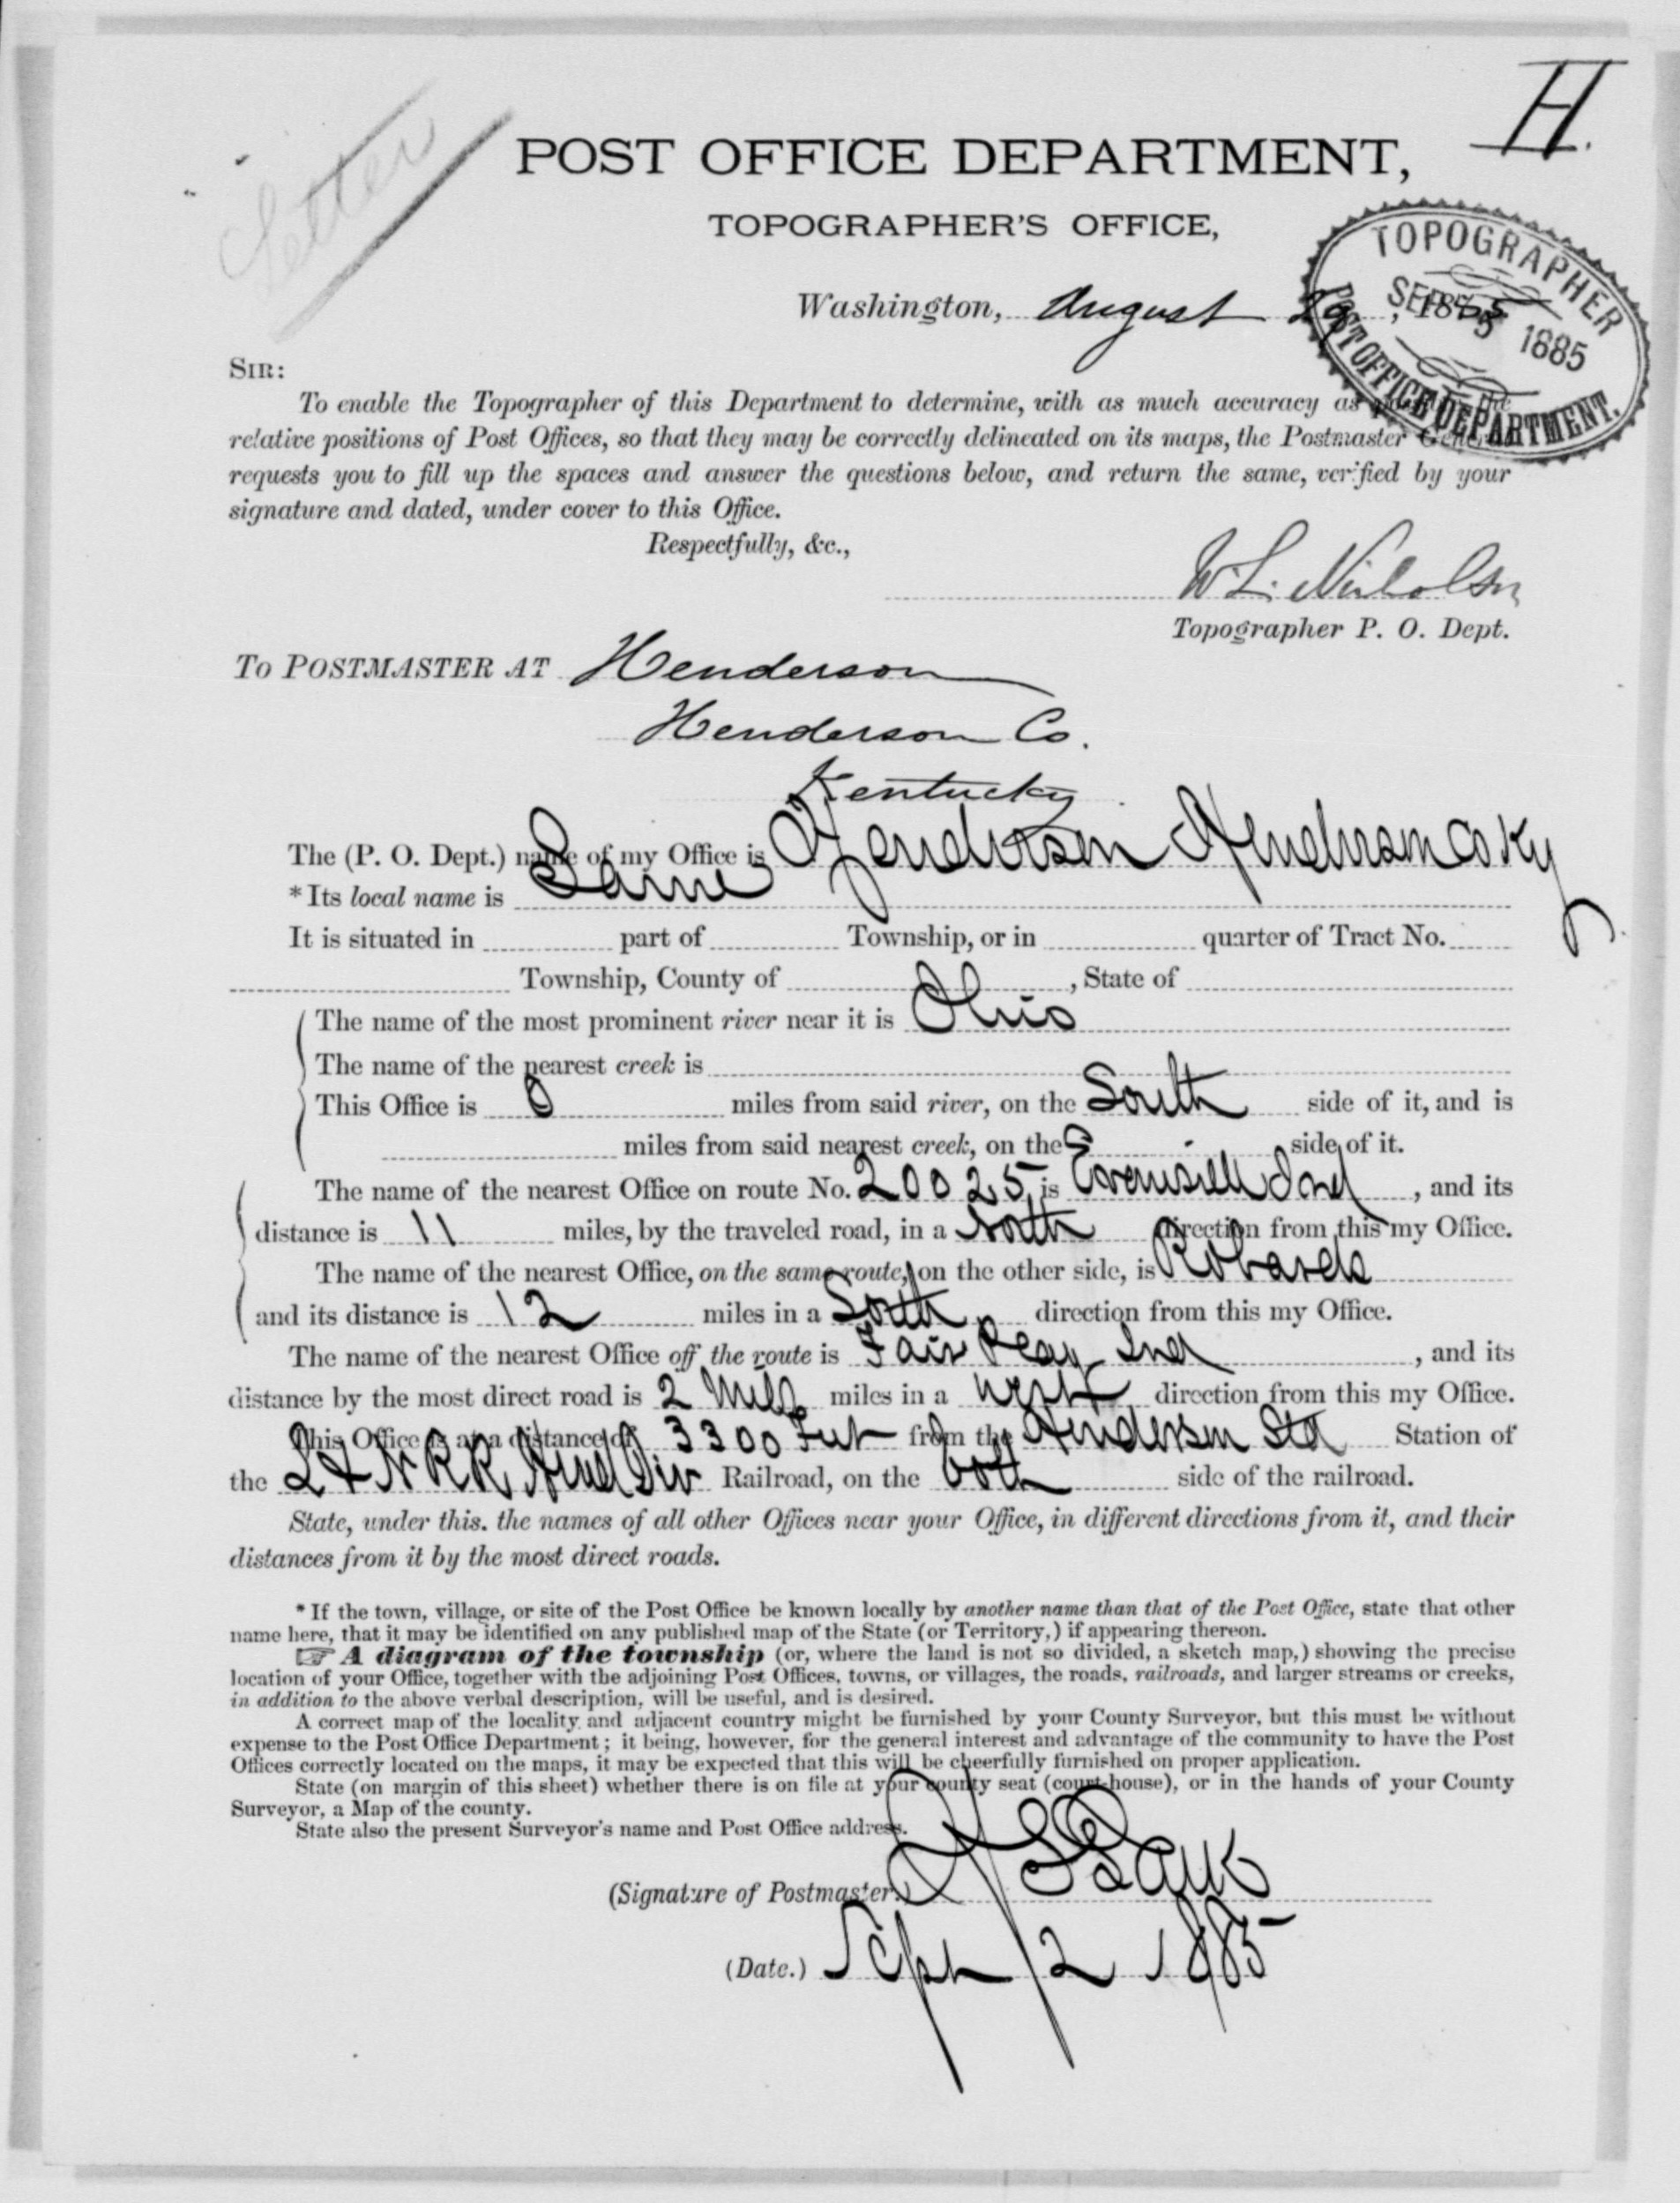 H.
Letter
POST OFFICE DEPARTMENT,
TOPOGRAPHER'S OFFICE,
TOPOGRAPHER
SEP 5 1885
POST OFFICE DEPARTMENT.
Washington, August 29, 1885
SIR:
To enable the Topographer of this Department to determine, with as much accuracy as possible, the
relative positions of Post Offices, so that they may be correctly delineated on its maps, the Postmaster General
requests you to fill up the spaces and answer the questions below, and return the same, verified by your
signature and dated, under cover to this Office.
Respectfully, &c.,
W. L. Nicholson
Topographer P. O. Dept.
To POSTMASTER AT Henderson
Henderson Co.
Kentucky
The (P. O. Dept.) name of my Office is Henderson Henderson Co Ky
*Its local name is Same
It is situated in part of Township, or in quarter of Tract No.
Township, County of , State of
The name of the most prominent river near it is Ohio
The name of the nearest creek is
This Office is 0 miles from said river, on the South side of it, and is
miles from said nearest creek, on the side of it.
The name of the nearest Office on route No. 20025, is Evansvill Ind, and its
distance is 11 miles, by the traveled road, in a North direction from this my Office.
The name of the nearest Office, on the same route, on the other side, is Robards
and its distance is 12 miles in a South direction from this my Office.
The name of the nearest Office off the route is Fair Play Ind, and its
distance by the most direct road is 2 Miles miles in a West direction from this my Office.
This Office is at a distance of 3300 Feet from the Henderson Sta Station of
the L & N RR, Hend Div Railroad, on the both side of the railroad.
State, under this. the names of all other Offices near your Office, in different directions from it, and their
distances from it by the most direct roads.
*If the town, village, or site of the Post Office be known locally by another name than that of the Post Office, state that other
name here, that it may be identified on any published map of the State (or Territory,) if appearing thereon.
☞ A diagram of the township (or, where the land is not so divided, a sketch map,) showing the precise
location of your Office, together with the adjoining Post Offices, towns, or villages, the roads, railroads, and larger streams or creeks,
in addition to the above verbal description, will be useful, and is desired.
A correct map of the locality and adjacent country might be furnished by your County Surveyor, but this must be without
expense to the Post Office Department; it being, however, for the general interest and advantage of the community to have the Post
Offices correctly located on the maps, it may be expected that this will be cheerfully furnished on proper application.
State (on margin of this sheet) whether there is on file at your county seat (court-house), or in the hands of your County
Surveyor, a Map of the county.
State also the present Surveyor's name and Post Office address.
(Signature of Postmaster.)
(Date.) Sept 2 1885